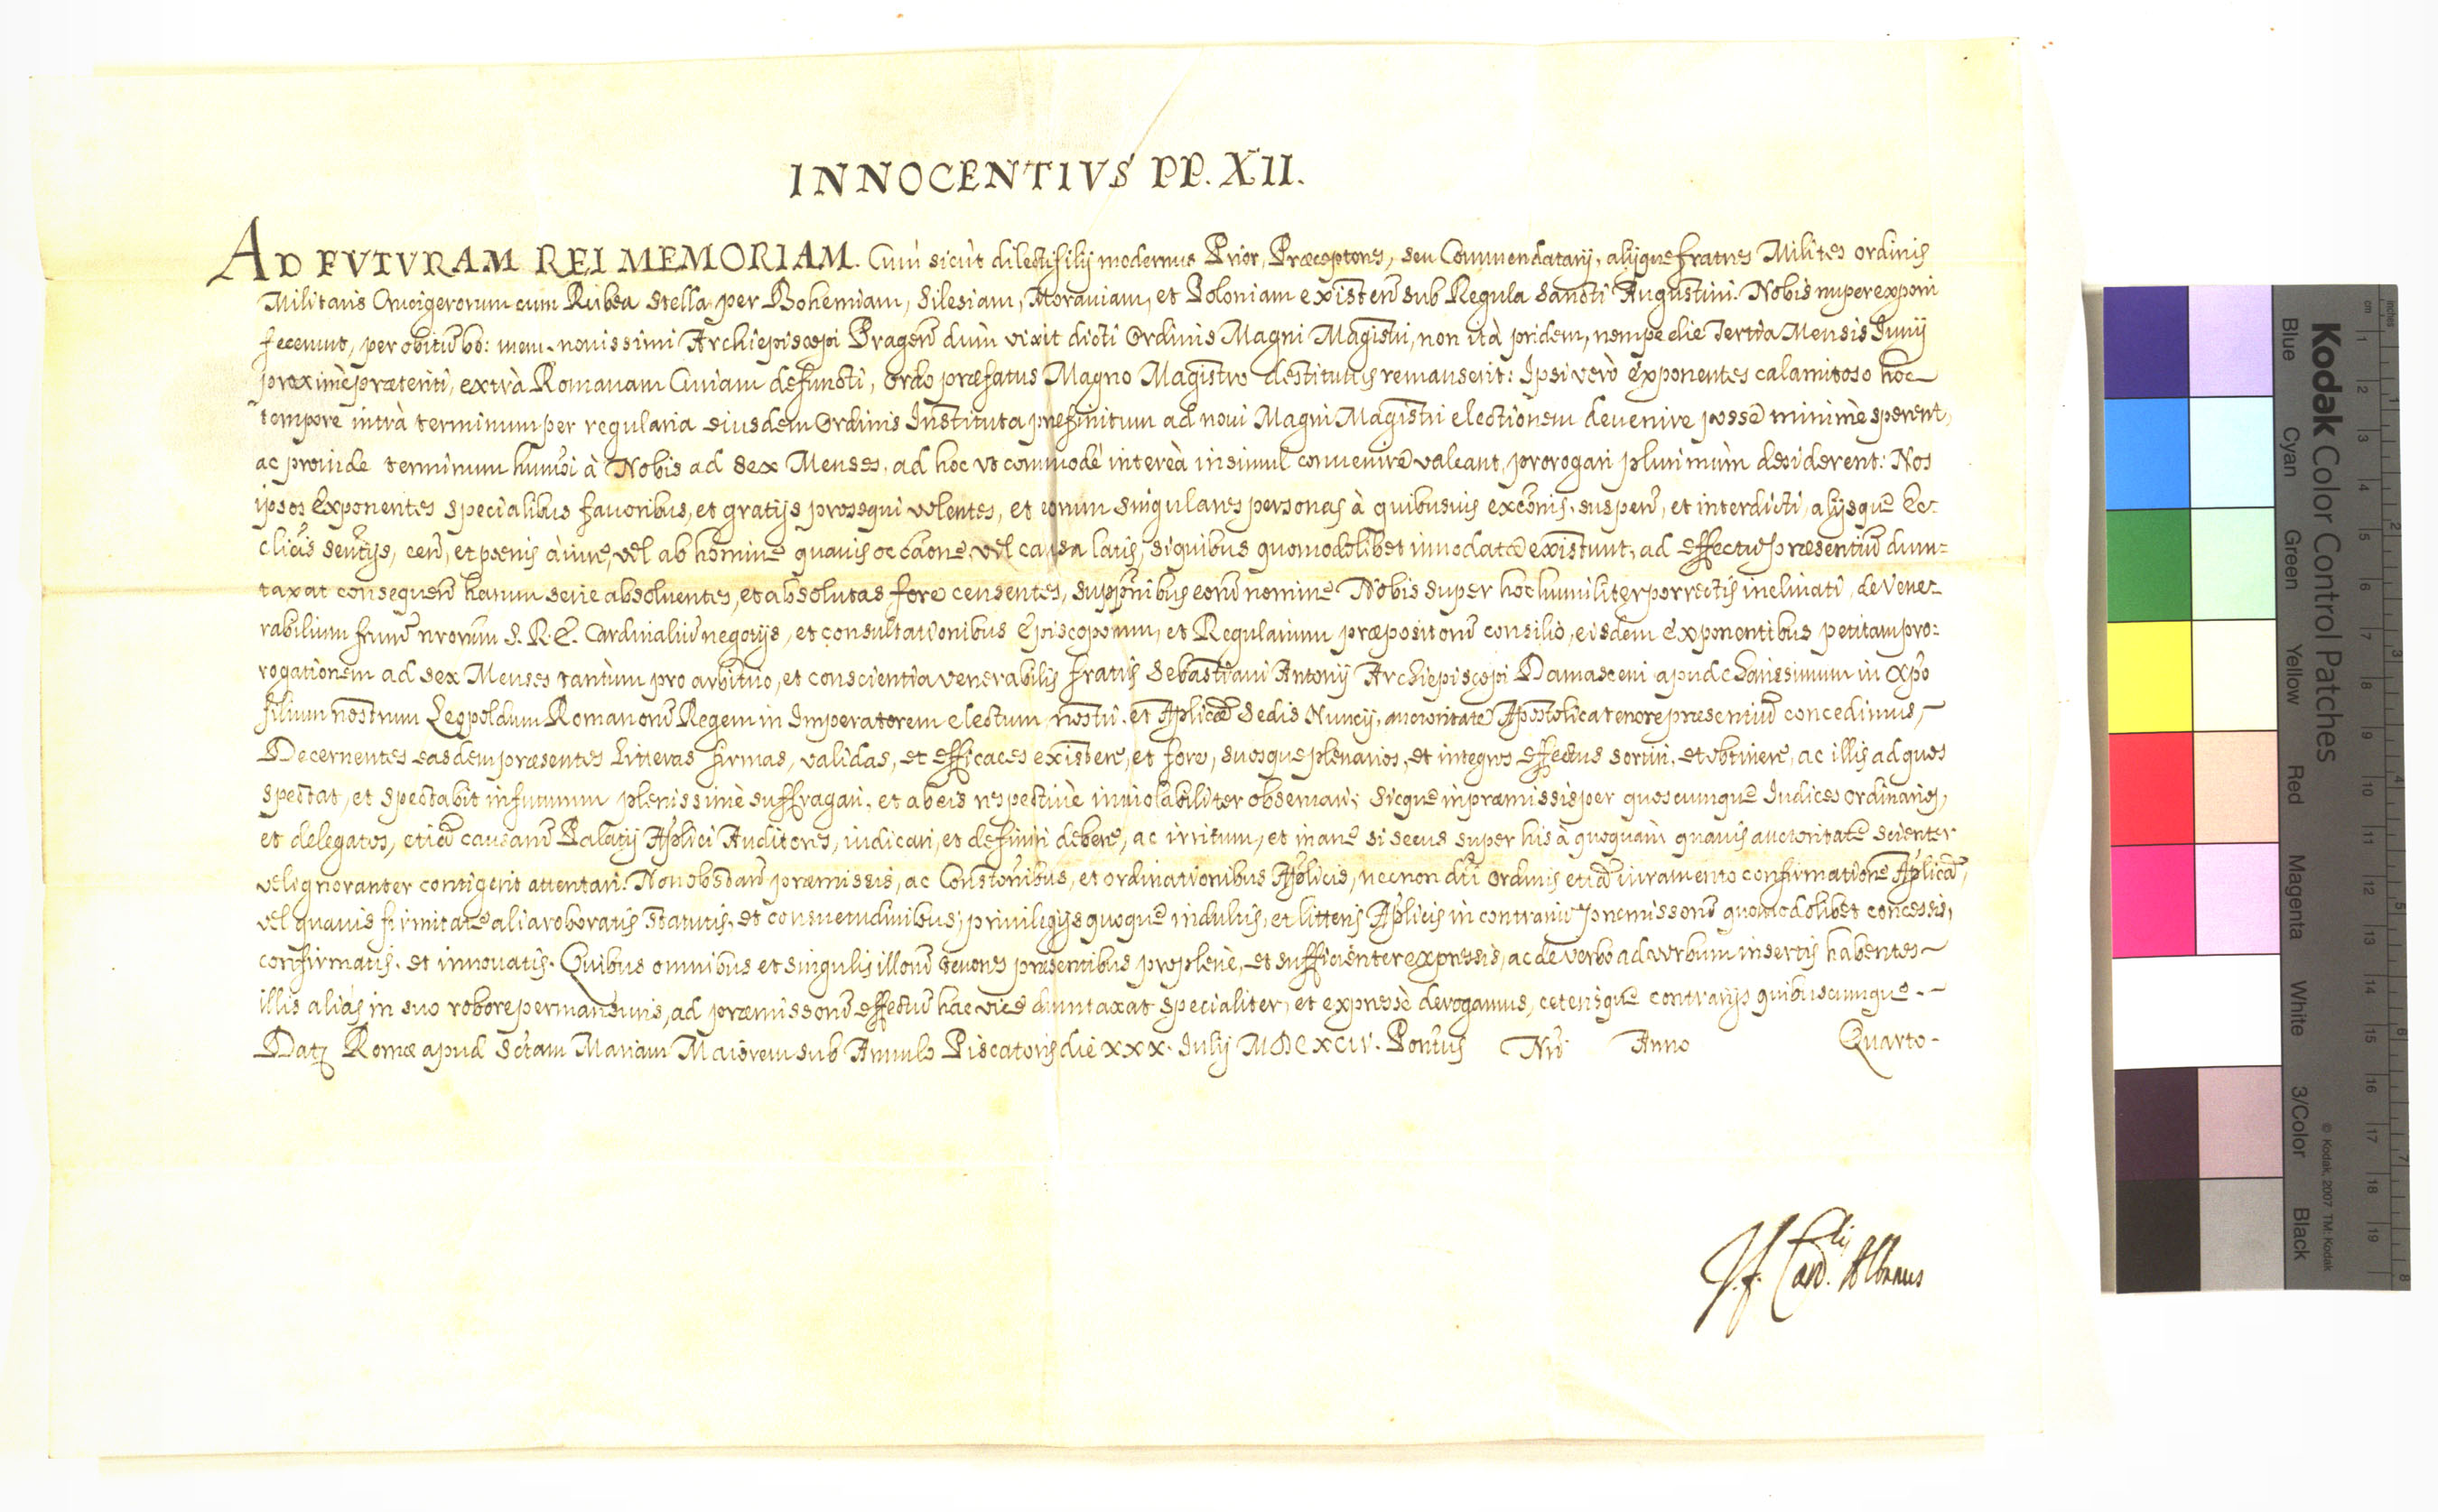 INNOCENTIVS PP. XII.
AD FVTVRAM REI MEMORIAM. Cum sicùt dilecti filij modernus Prior, Præceptores, seu Commendatarij, alijque fratres Milites ordinis
Militaris Crucigerorum cum Rubea Stella per Bohemiam, Silesiam, Morauiam, et Poloniam existen sub Regula Sancti Augustini. Nobis nuper exponi
fecerunt, per obitum bo: mem. nouissimi Archiepiscopi Pragen dum vixit dicti Ordinis Magni Magistri, non ità pridem, nempe die Tertia Mensis Junij
proximè præteriti, extrà Romanam Curiam defuncti, Ordo præfatus Magno Magistro destitutus remanserit: Ipsi verò exponentes calamitoso hoc
tempore intrà terminum per regularia eiusdem Ordinis Instituta prefinitum ad noui Magni Magistri electionem deuenire posse minimè sperent,
ac proinde terminum humōi à Nobis ad sex Menses, ad hoc vt commodè intereà insimul conuenire valeant, prorogari plurimùm desiderent: Nos
ipsos Exponentes specialibus fauoribus, et gratijs prosequi volentes, et eorum singulares personas à quibusuis excōnis, suspen, et interdicti, alijsque Ec-
clicis sentijs, cen, et pœnis à iure, vel ab homine quauis occāone, vel causa latis, si quibus quomodolibet innodatæ existunt, ad effectū præsentiū dum=
taxat consequen harum serie absoluentes, et absolutas fore censentes, suppnibus eorū nomine Nobis super hoc humiliter porrectis inclinati, de Vener-
rabilium frum nrorum S. R. E. Cardinaliū negotijs, et consultationibus Episcoporum, et Regularium præpositorū consilio, eisdem exponentibus petitam pro:
rogationem ad sex Menses tantùm pro arbitrio, et conscientia venerabilis fratris Sebastiani Antonij Archiepiscopi Damasceni apud charissimum in Xpō
filium nostrum Leopoldum Romanorū Regem in Imperatorem electum nostri, et Aplicæ Sedis Nuncij, auctoritate Apostolica tenore præsentiū concedimus,
Decernentes easdem præsentes Litteras firmas, validas, et efficaces existere, et fore, suosque plenarios, et integros effectus sortiri, et obtinere, ac illis ad quos
spectat, et spectabit in futurum plenissimè suffragari, et ab eis respectiuè inuiolabiliter obseruari; Sicque in præmissis per quoscumque Iudices ordinarios,
et delegatos, etiā causarū Palatij Aplici Auditores, iudicari, et definiri debere, ac irritum, et inane si secus super his à quoquam quauis auctoritate scienter
vel ignoranter contigerit attentari. Non obstan præmissis, ac Constonibus, et ordinationibus Aplicis, necnon dti Ordinis etiā iuramento confirmatione Aplicā,
vel quauis firmitate alia roboratis statutis, et consuetudinibus; priuilegijs quoque indultis, et litteris Aplicis in contrariū premissorū quomodolibet concessis,
confirmatis, et innouatis. Quibus omnibus et singulis illorū tenores præsentibus pro plenè, et sufficienter expressis, ac de verbo ad verbum insertis habentes
illis aliàs in suo robore permansuris, ad præmissorū effectū hac vice dumtaxat specialiter, et expressè derogamus, ceterisque contrarijs quibuscumque.
Dat Romæ apud Sctam Mariam Maiorem sub Annulo Piscatoris die xxx. Iulij MDCXCIV. Pontus Nri Anno Quarto.
Card. Albanus
Kodak Color Control Patches
Blue Cyan Green Yellow Red Magenta White 3/Color Black
© Kodak, 2007 TM: Kodak
cm 1 2 3 4 5 6 7 8 9 10 11 12 13 14 15 16 17 18 19
inches 1 2 3 4 5 6 7 8